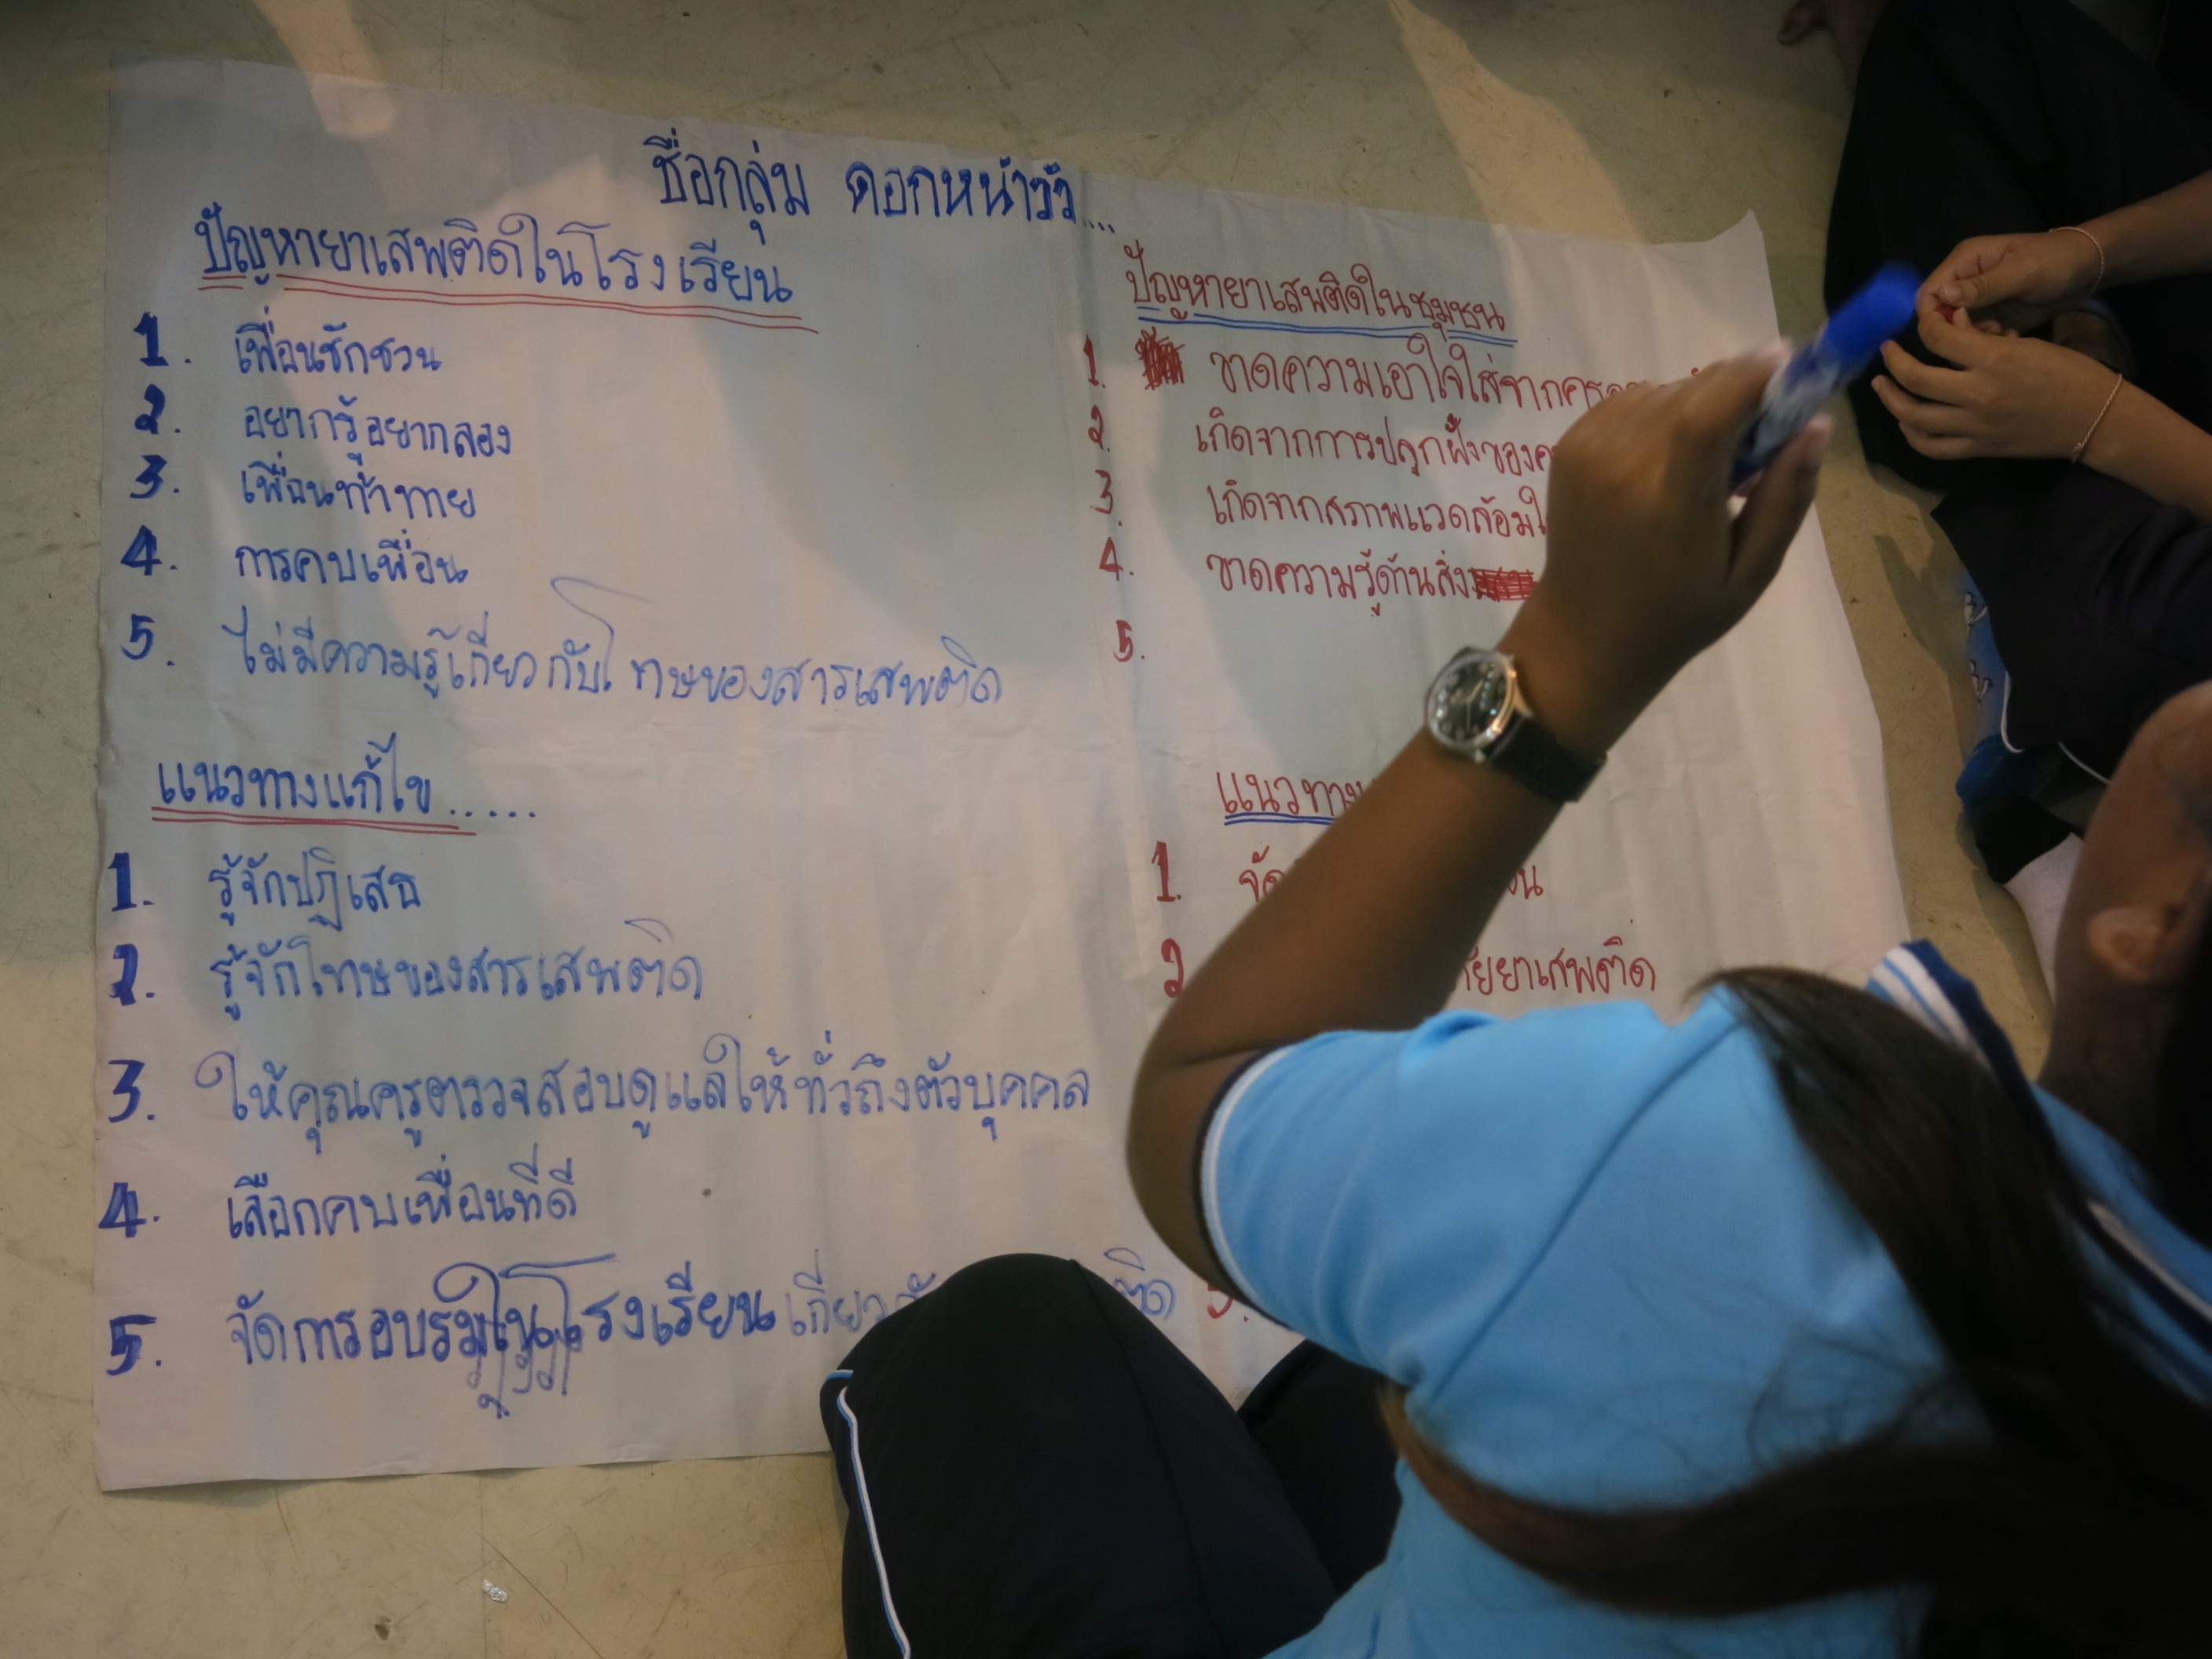 ชื่อกลุ่ม ดอกหน้าวัว...
ปัญหายาเสพติดในโรงเรียน
1. เพื่อนชักชวน
2. อยากรู้อยากลอง
3. เพื่อนท้าทาย
4. การคบเพื่อน
5. ไม่มีความรู้เกี่ยวกับโทษของสารเสพติด
แนวทางแก้ไข.....
1. รู้จักปฏิเสธ
2. รู้จักโทษของสารเสพติด
3. ให้คุณครูตรวจสอบดูแลให้ทั่วถึงตัวบุคคล
4. เลือกคบเพื่อนที่ดี
5. จัดการอบรมในโรงเรียน
ปัญหายาเสพติดในชุมชน
1. ขาดความเอาใจใส่จาก
2. เกิดจากการปลูกฝังของ
3. เกิดจากสภาพแวดล้อม
4. ขาดความรู้ด้านสิ่ง
5.
1.
2. ยาเสพติด
5.